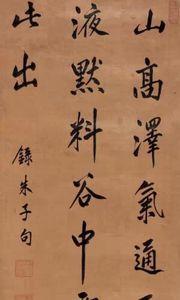 山高澤氣通石
液黙料谷中雲
此出
錄朱子句